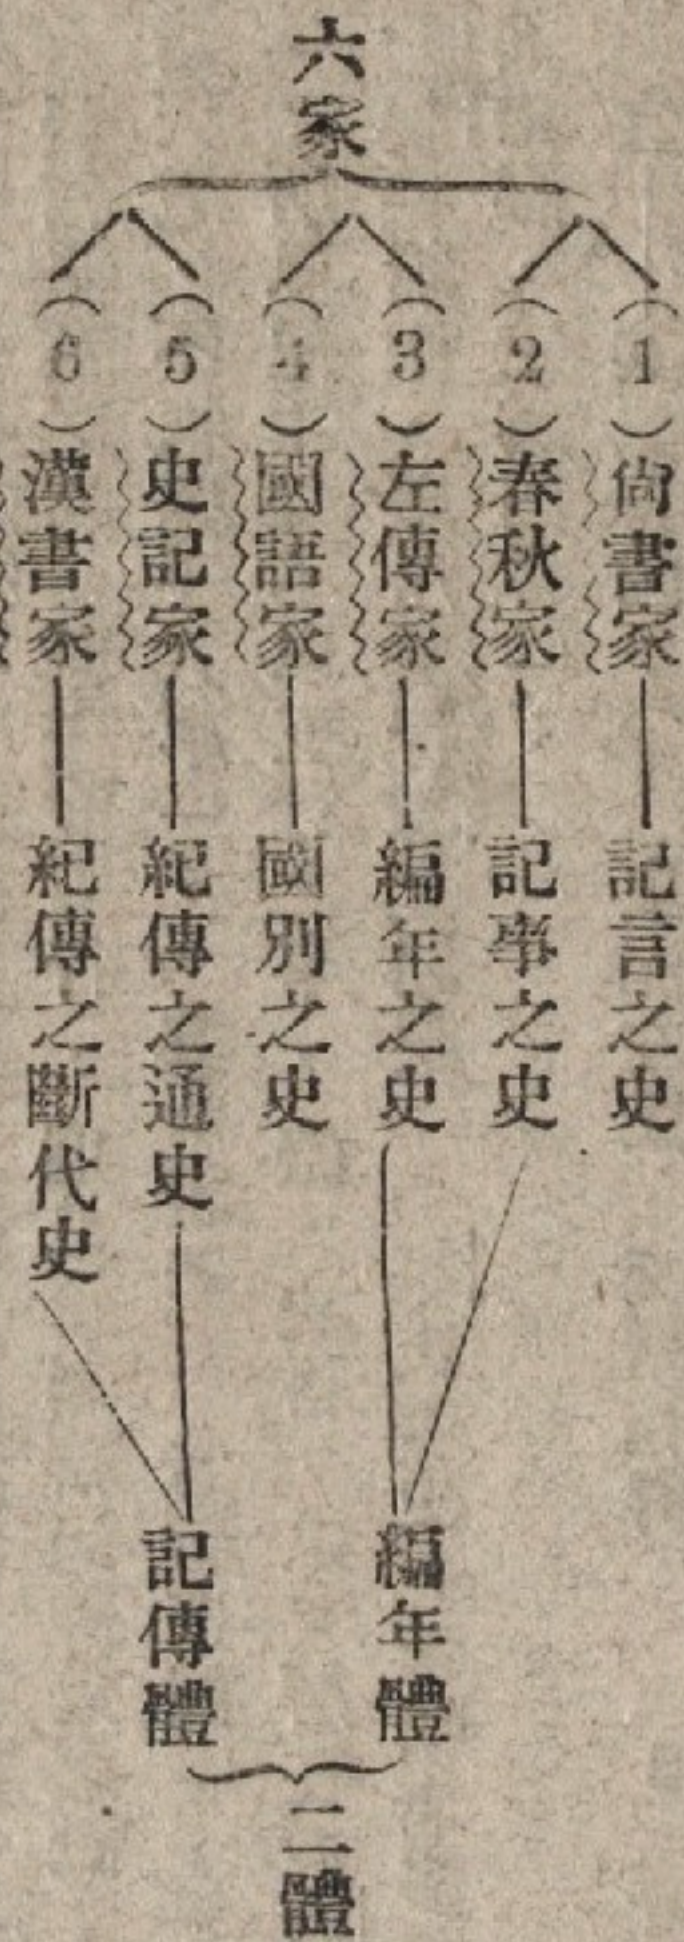 六家
（1）尙書家——記言之史
（2）春秋家——記事之史
（3）左傳家——編年之史
（4）國語家——國別之史
（5）史記家——紀傳之通史
（6）漢書家——紀傳之斷代史
編年體
記傳體
二體